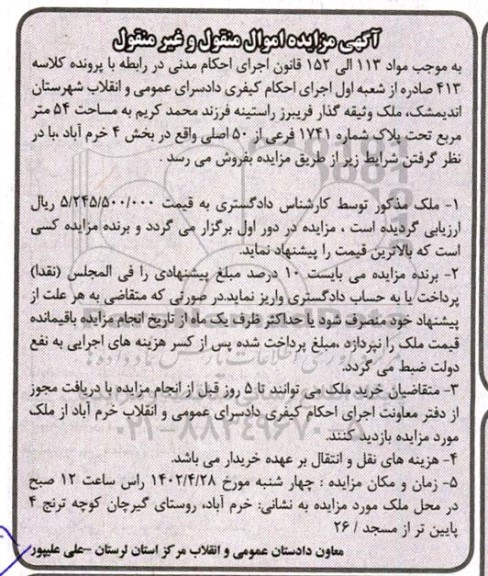 آگهی مزایده اموال منقول و غیر منقول
به موجب مواد ۱۱۳ الی ۱۵۲ قانون اجرای احکام مدنی در رابطه با پرونده کلاسه
۴۱۳ صادره از شعبه اول اجرای احکام کیفری دادسرای عمومی و انقلاب شهرستان
اندیمشک، ملک وثیقه گذار فریبرز راستینه فرزند محمد کریم به مساحت ۵۴ متر
مربع تحت پلاک شماره ۱۷۴۱ فرعی از ۵۰ اصلی واقع در بخش ۴ خرم آباد ،با در
نظر گرفتن شرایط زیر از طریق مزایده بفروش می رسد .
۱- ملک مذکور توسط کارشناس دادگستری به قیمت ۵/۲۴۵/۵۰۰/۰۰۰ ریال
ارزیابی گردیده است ، مزایده در دور اول برگزار می گردد و برنده مزایده کسی
است که بالاترین قیمت را پیشنهاد نماید.
۲- برنده مزایده می بایست ۱۰ درصد مبلغ پیشنهادی را فی المجلس (نقدا)
پرداخت یا به حساب دادگستری واریز نماید.در صورتی که متقاضی به هر علت از
پیشنهاد خود منصرف شود یا حداکثر ظرف یک ماه از تاریخ انجام مزایده باقیمانده
قیمت ملک را نپردازد ،مبلغ پرداخت شده پس از کسر هزینه های اجرایی به نفع
دولت ضبط می گردد.
۳- متقاضیان خرید ملک می توانند تا ۵ روز قبل از انجام مزایده با دریافت مجوز
از دفتر معاونت اجرای احکام کیفری دادسرای عمومی و انقلاب خرم آباد از ملک
مورد مزایده بازدید کنند.
۴- هزینه های نقل و انتقال بر عهده خریدار می باشد.
۵- زمان و مکان مزایده : چهار شنبه مورخ ۱۴۰۲/۴/۲۸ راس ساعت ۱۲ صبح
در محل ملک مورد مزایده به نشانی: خرم آباد، روستای گیرچان کوچه ترنج ۴
پایین تر از مسجد / ۲۶
معاون دادستان عمومی و انقلاب مرکز استان لرستان –علی علیپور